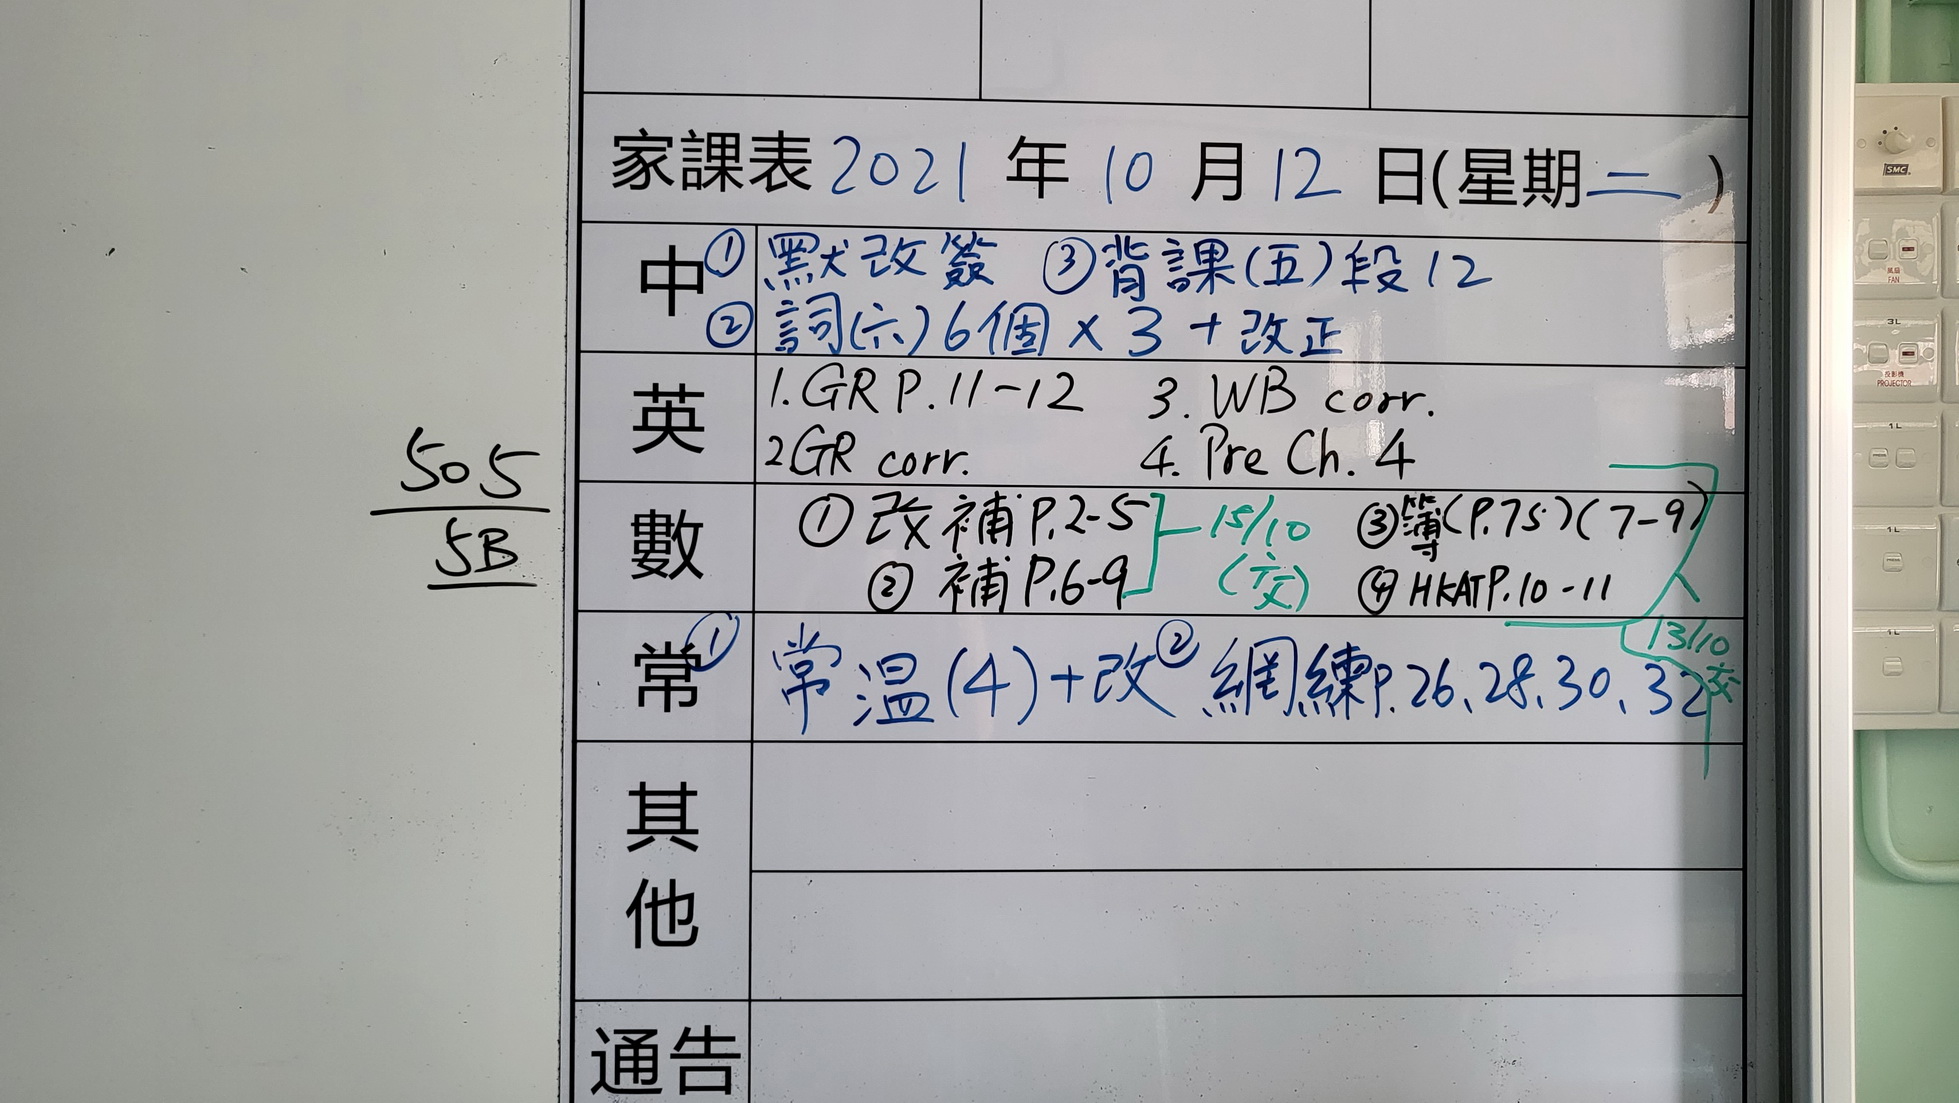 家課表 2021 年 10 月 12 日(星期二)
中 ① 默改簽 ③背課(五)段12
② 詞(六)6個×3+改正
英 1.GR P.11-12 3. WB corr.
2GR corr. 4. Pre Ch. 4
數 ① 改補P.2-5 15/10 ③簿(P.75)(7-9)
② 補P.6-9 (交) ④HKATP.10-11
13/10
交
常 ① 常温(4)+改 ② 網練P.26、28、30、32
其他
通告
505
5B
SMC
風扇
FAN
3L
投影機
PROJECTOR
1L
1L
1L